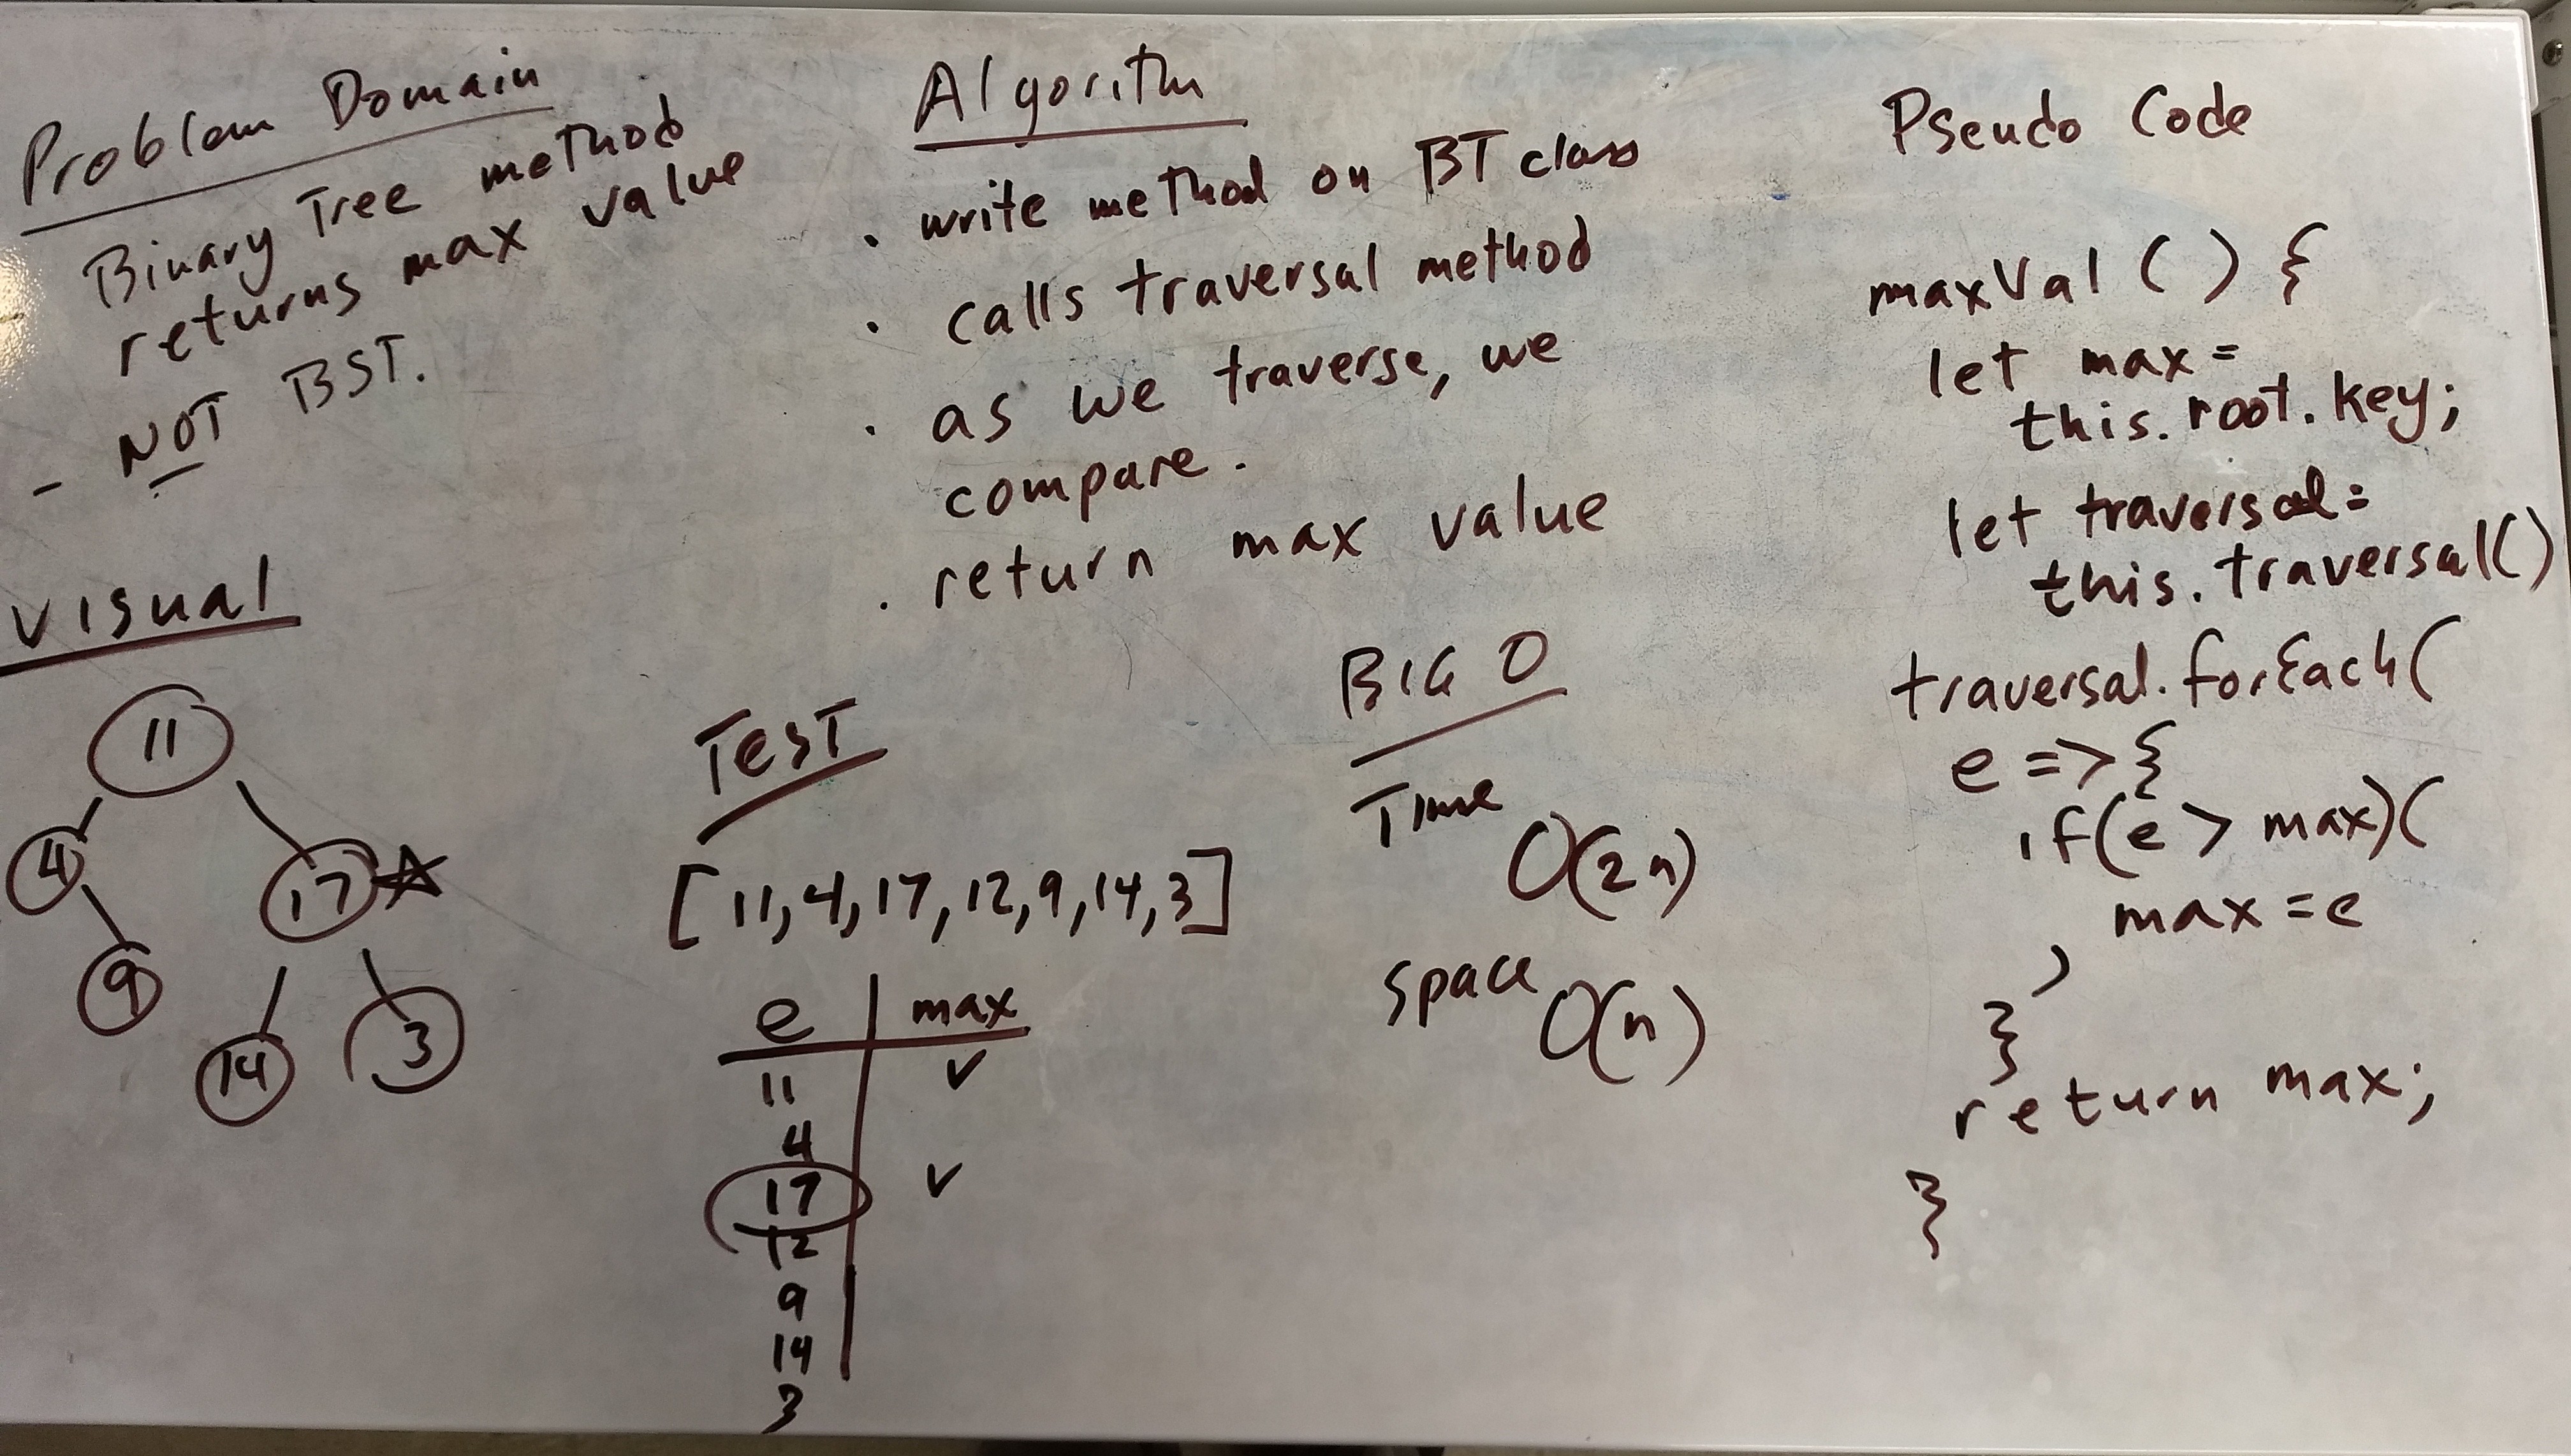 Problem Domain
Binary Tree method
returns max value
- NOT BST.
Visual
11
4
17
9
14
3
Algorithm
. write method on BT class
. calls traversal method
. as we traverse, we
compare.
. return max value
Test
[11,4,17,12,9,14,3]
e max
11 ✓
4
17 ✓
12
9
14
3
BIG O
Time
O(2n)
Space
O(n)
Pseudo Code
maxVal () {
let max =
this.root.key;
let traversal=
this.traversal()
traversal.forEach(
e => {
if(e > max)(
max = e
)
}
return max;
}